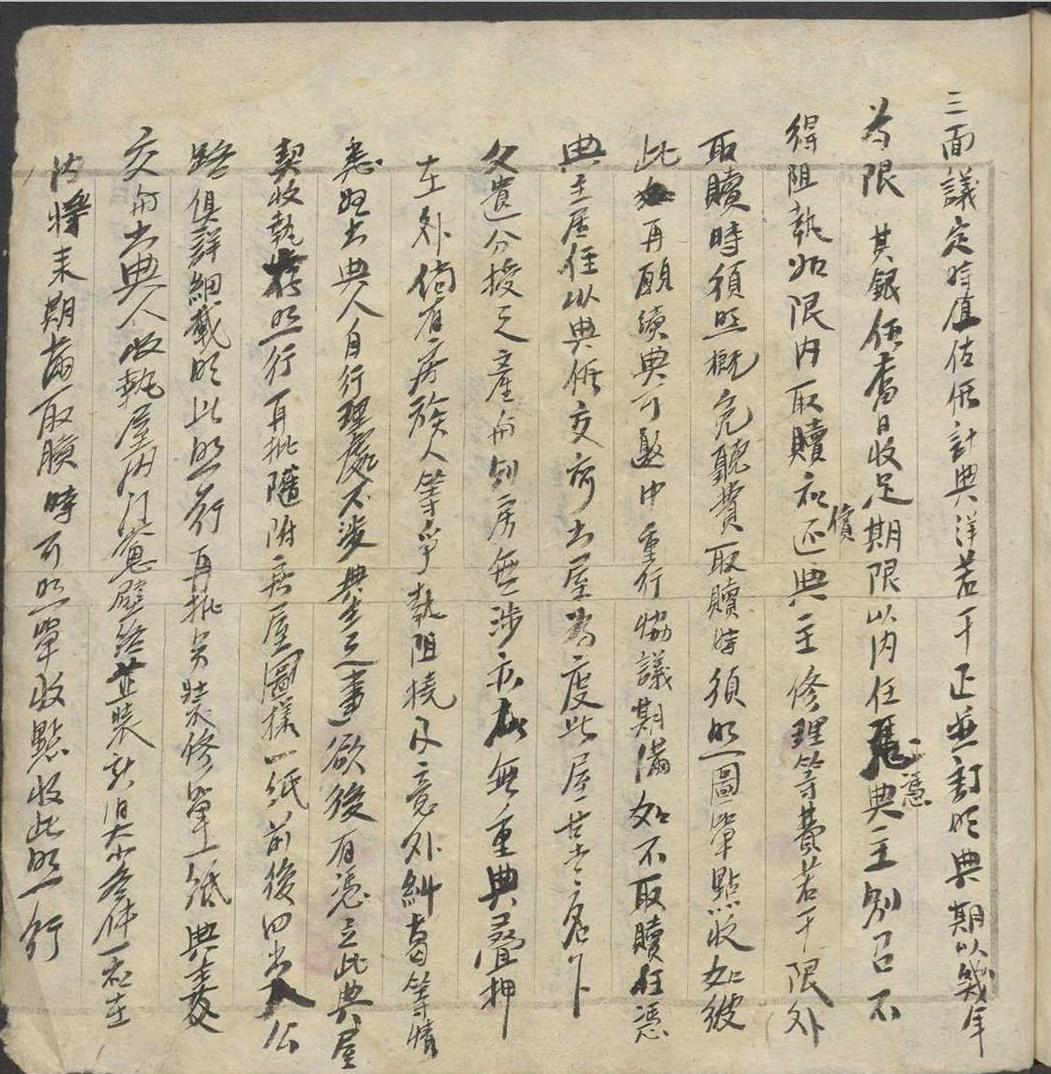 三面議定時值估価計典洋若干正並訂明典期以幾年
為限 其銀価當日收足期限以内任憑典主別召不
得阻執如限内取贖衣償还典主修理等費若干限外
取贖時須照概免聽費取贖時須照圖單點收如彼
此再願續典可邀中重行協議期滿如不取贖任憑
典主居住以典価交齊出屋為度此屋
父遺分授之產與別房無涉亦無重典疊押
在外倘有房族人等爭執阻撓及意外糾葛等情
悉归出典人自行理處不涉典主之事欲後有憑立此典屋
契收執存照行再批隨附房屋圖樣一紙前後四
路俱詳細載明此照行再批另裝修單一紙典主
交與出典人收執屋内门窓壁並裝新旧一衣在
内将来期滿取贖時可照單收點收此照行